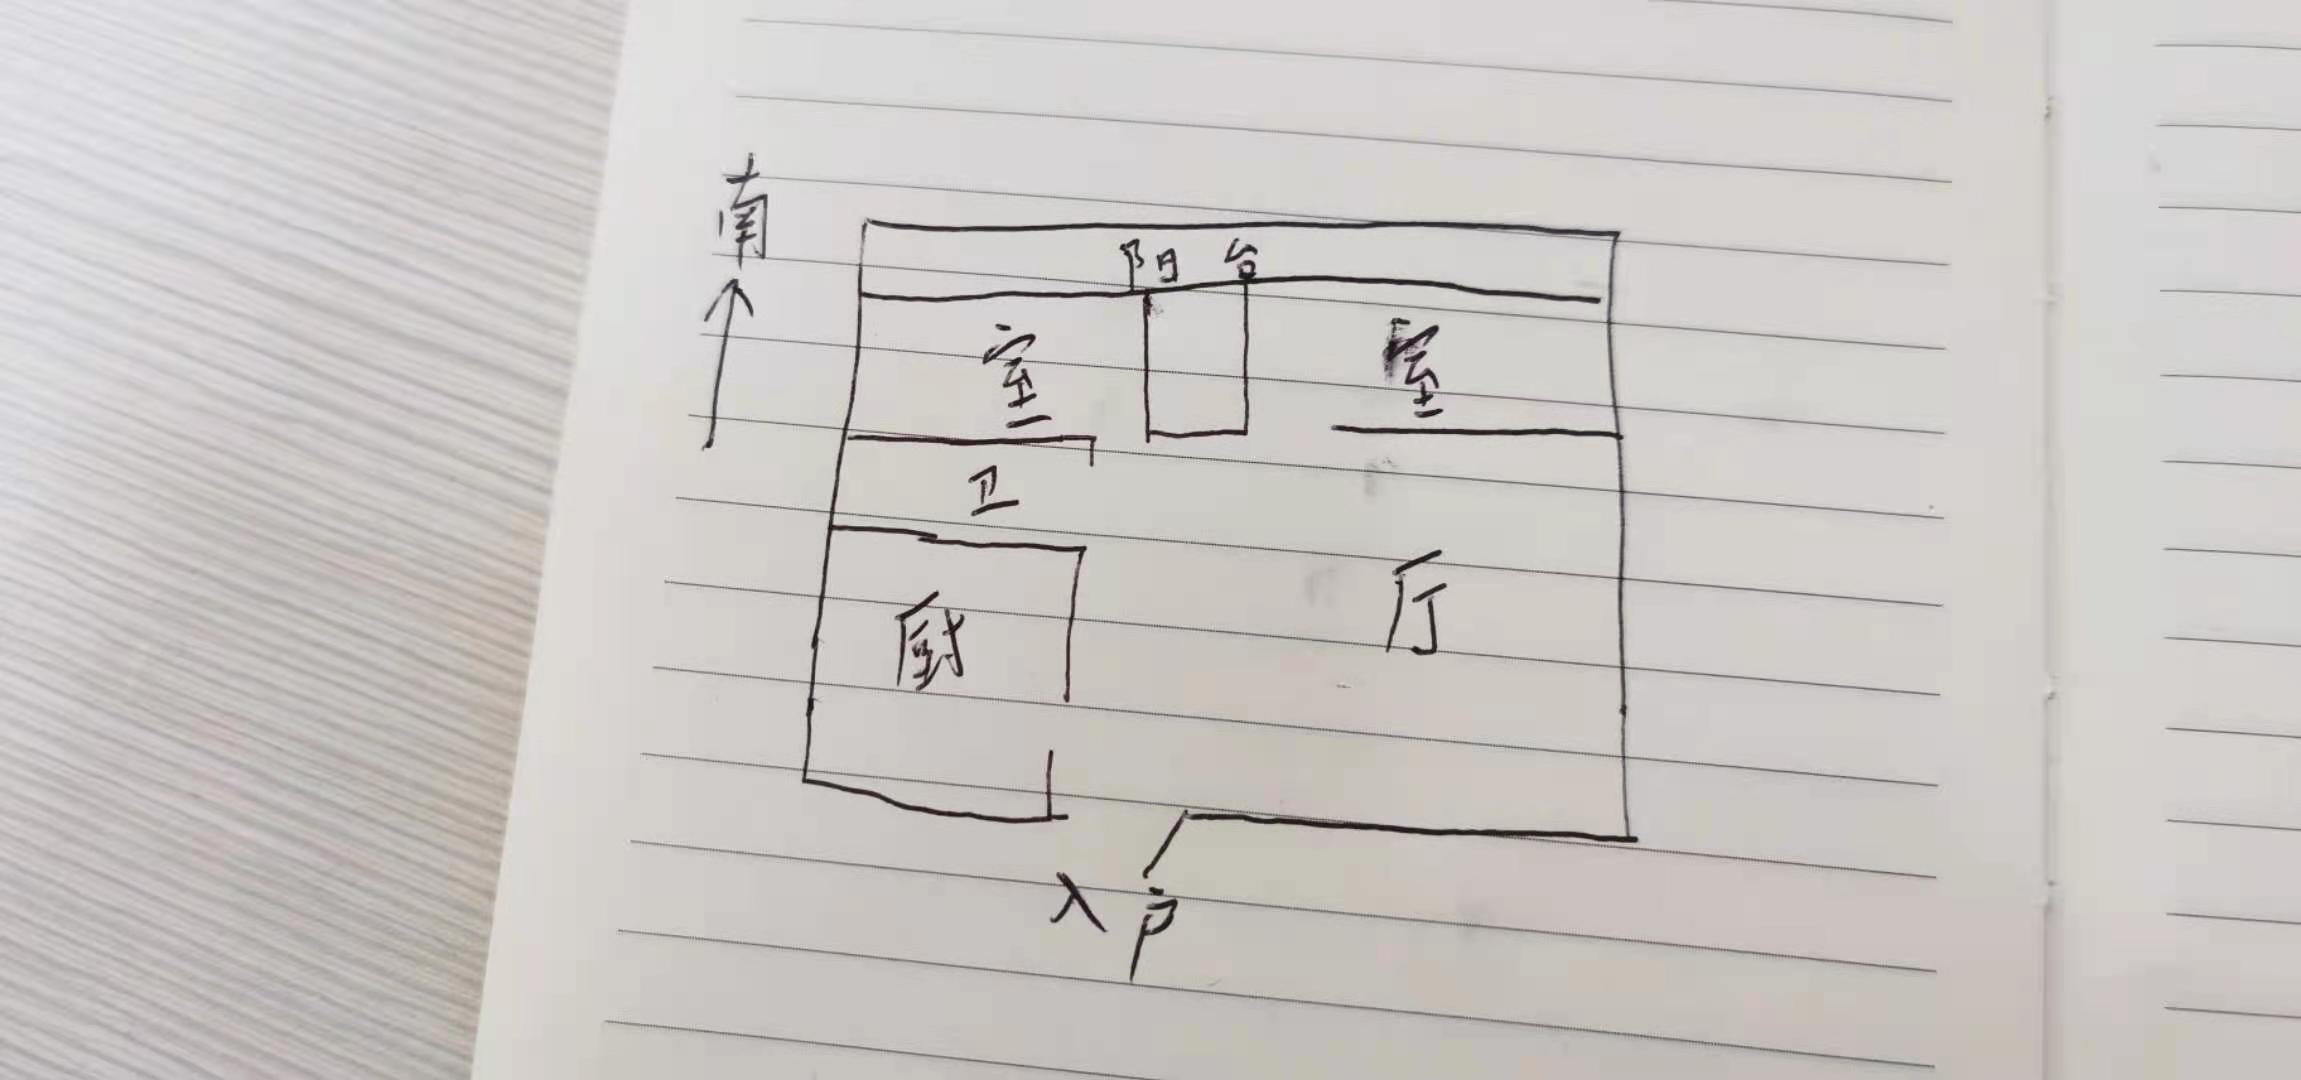 南
阳台
室 室
卫
厅
厨
入户